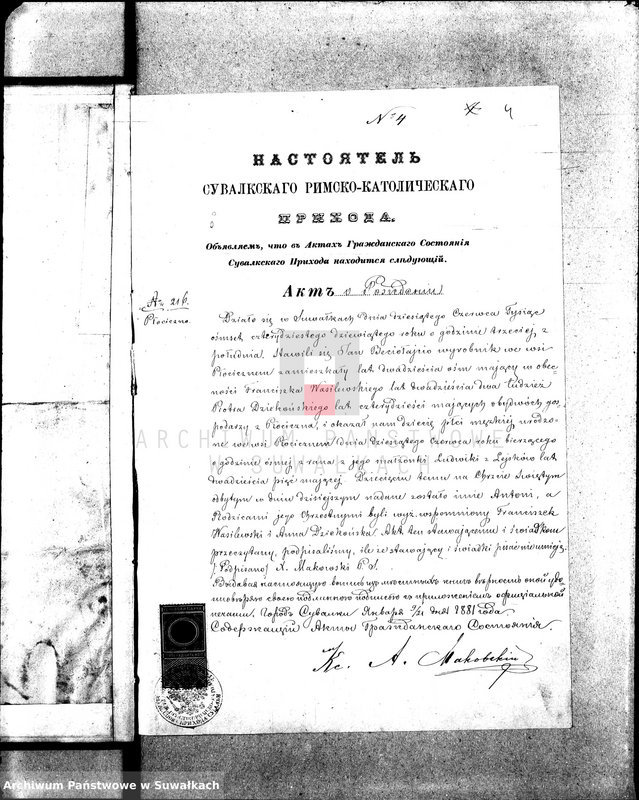 № 4 4 4
НАСТОЯТЕЛЬ
СУВАЛКСКАГО РИМСКО-КАТОЛИЧЕСКАГО
ПРИХОДА.
Объявляемъ, что въ Актахъ Гражданскаго Состоянія
Сувалкскаго Прихода находится слѣдующій.
Актъ о Рожденіи
№ 216.
Płociczno.
Działo się w Suwałkach dnia dziesiątego Czerwca Tysiąc
ośmset czterdziestego dziewiątego roku o godzinie trzeciej z
południa. Stawili się Jan wyrobnik we wsi
Płocicznem zamieszkały lat dwadzieścia ośm mający w obec-
ności Franciszka Wasilewskiego lat dwadzieścia dwa tudzież
Piotra Dziekońskiego lat czterdzieści mających obydwóch gos-
podarzy z Płociczna, i okazał nam dziecię płci męzkiej urodzo-
ne we wsi Płocicznem dnia dziesiątego Czerwca roku bieżącego
o godzinie osmej z rana z jego małżonki Ludwiki z Lejsków lat
dwadzieścia pięć mającej. Dziecięciu temu na Chrzcie Świętym
odbytym w dniu dzisiejszym nadane zostało imie Antoni, a
Rodzicami jego Chrzestnymi byli wyż. wspomniony Franciszek
Wasilewski i Anna Dziekońska. Akt ten stawającemu i świadkom
przeczytany, podpisaliśmy, ile że stawający i świadki pisać nie umieją.
/ Podpisano / X. Makowski
Выдавая настоящую выпись изъ книгъ вѣрность оной удо-
стовѣряю своею подписью съ приложеніемъ оффиціальной
печати. Городъ Сувалки Января 9/21 дня 1881 года
Содержащій Акты Гражданскаго Состоянія
Кс. А. Маковскій
ARCHIWUM PAŃSTWOWE
W SUWAŁKACH
Archiwum Państwowe w Suwałkach